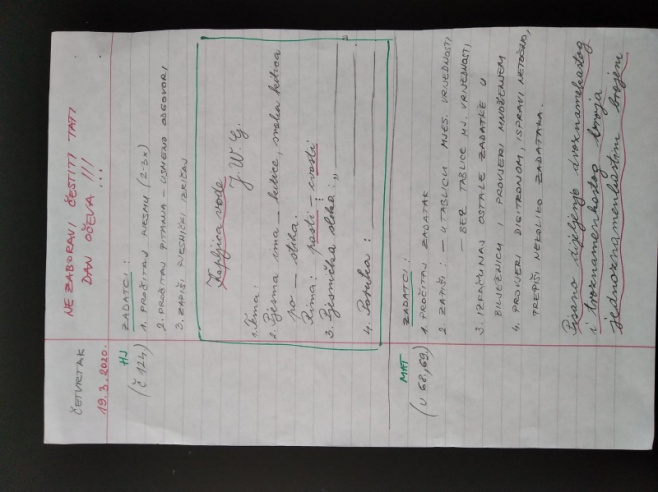 ČETVRTAK
19.3.2020.
NE ZABORAVI ČESTITI TATI
DAN OČEVA !!!
HJ
(č 124)
ZADATCI:
1. PROČITAJ PJESMU (2-3x)
2. PROČITAJ PITANJA - USMENO ODGOVORI
3. ZAPIŠI PJESNIČKI IZRIČAJ
Kapljica vode
J. W. G.
1. Tema:
2. Pjesma ima - kitice, svaka kitica
po - stiha.
Rima: pasti - cvasti
3. Pjesnička slika: "
4. Poruka:
MAT
(U 68,69)
ZADATCI:
1. PROČITAJ ZADATAK
2. ZAPIŠI: - U TABLICU MJES. VRIJEDNOSTI
- BEZ TABLICE MJ. VRIJEDNOSTI
3. IZRAČUNAJ OSTALE ZADATKE U
BILJEŽNICU I PROVJERI MNOŽENJEM
4. PROVJERI DIGITRONOM, ISPRAVI NETOČNO,
NEKOLIKO ZADATAKA.
Pisano dijeljenje dvoznamenkastog
i troznamenkastog broja
jednoznamenkastim brojem